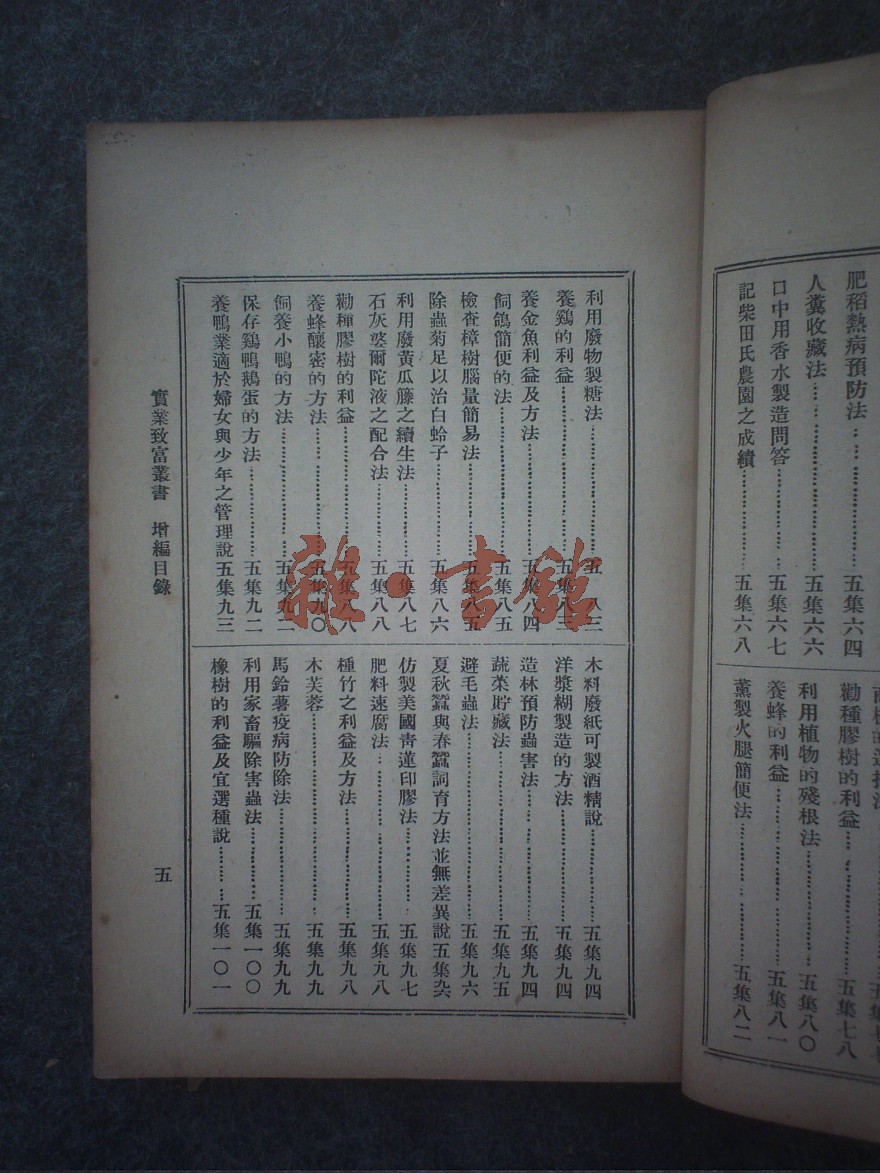 肥稻熱病預防法 五集六四
人糞收藏法 五集六六
口中用香水製造問答 五集六七
記柴田氏農園之成績 五集六八
勸種膠樹的利益 五集七八
利用植物的殘根法 五集八〇
養蜂的利益 五集八一
薰製火腿簡便法 五集八二
利用廢物製糖法 五 八三
養鷄的利益 五集八三
養金魚利益及方法 五集八四
飼鴿簡便的法 五集八五
檢查樟樹腦量簡易法 五集八五
除蟲菊足以治白蛉子 五集八六
利用廢黃瓜籐之續生法 五集八七
石灰婆爾陀液之配合法 五集八八
勸種膠樹的利益 五集八八
養蜂釀密的方法 五集九〇
飼養小鴨的方法 五集九二
保存鷄鴨鵝蛋的方法 五集九二
養鴨業適於婦女與少年之管理說 五集九三
木料廢紙可製酒精說 五集九四
洋漿糊製造的方法 五集九四
造林預防蟲害法 五集九四
蔬菜貯藏法 五集九五
避毛蟲法 五集九六
夏秋蠶與春蠶詞育方法並無差異說 五集九六
仿製美國靑蓮印膠法 五集九七
肥料速腐法 五集九八
種竹之利益及方法 五集九八
木芙蓉 五集九九
馬鈴薯疫病防除法 五集九九
利用家畜驅除害蟲法 五集一〇〇
橡樹的利益及宜選種說 五集一〇一
實業致富叢書 增編目錄
五
雜·書館